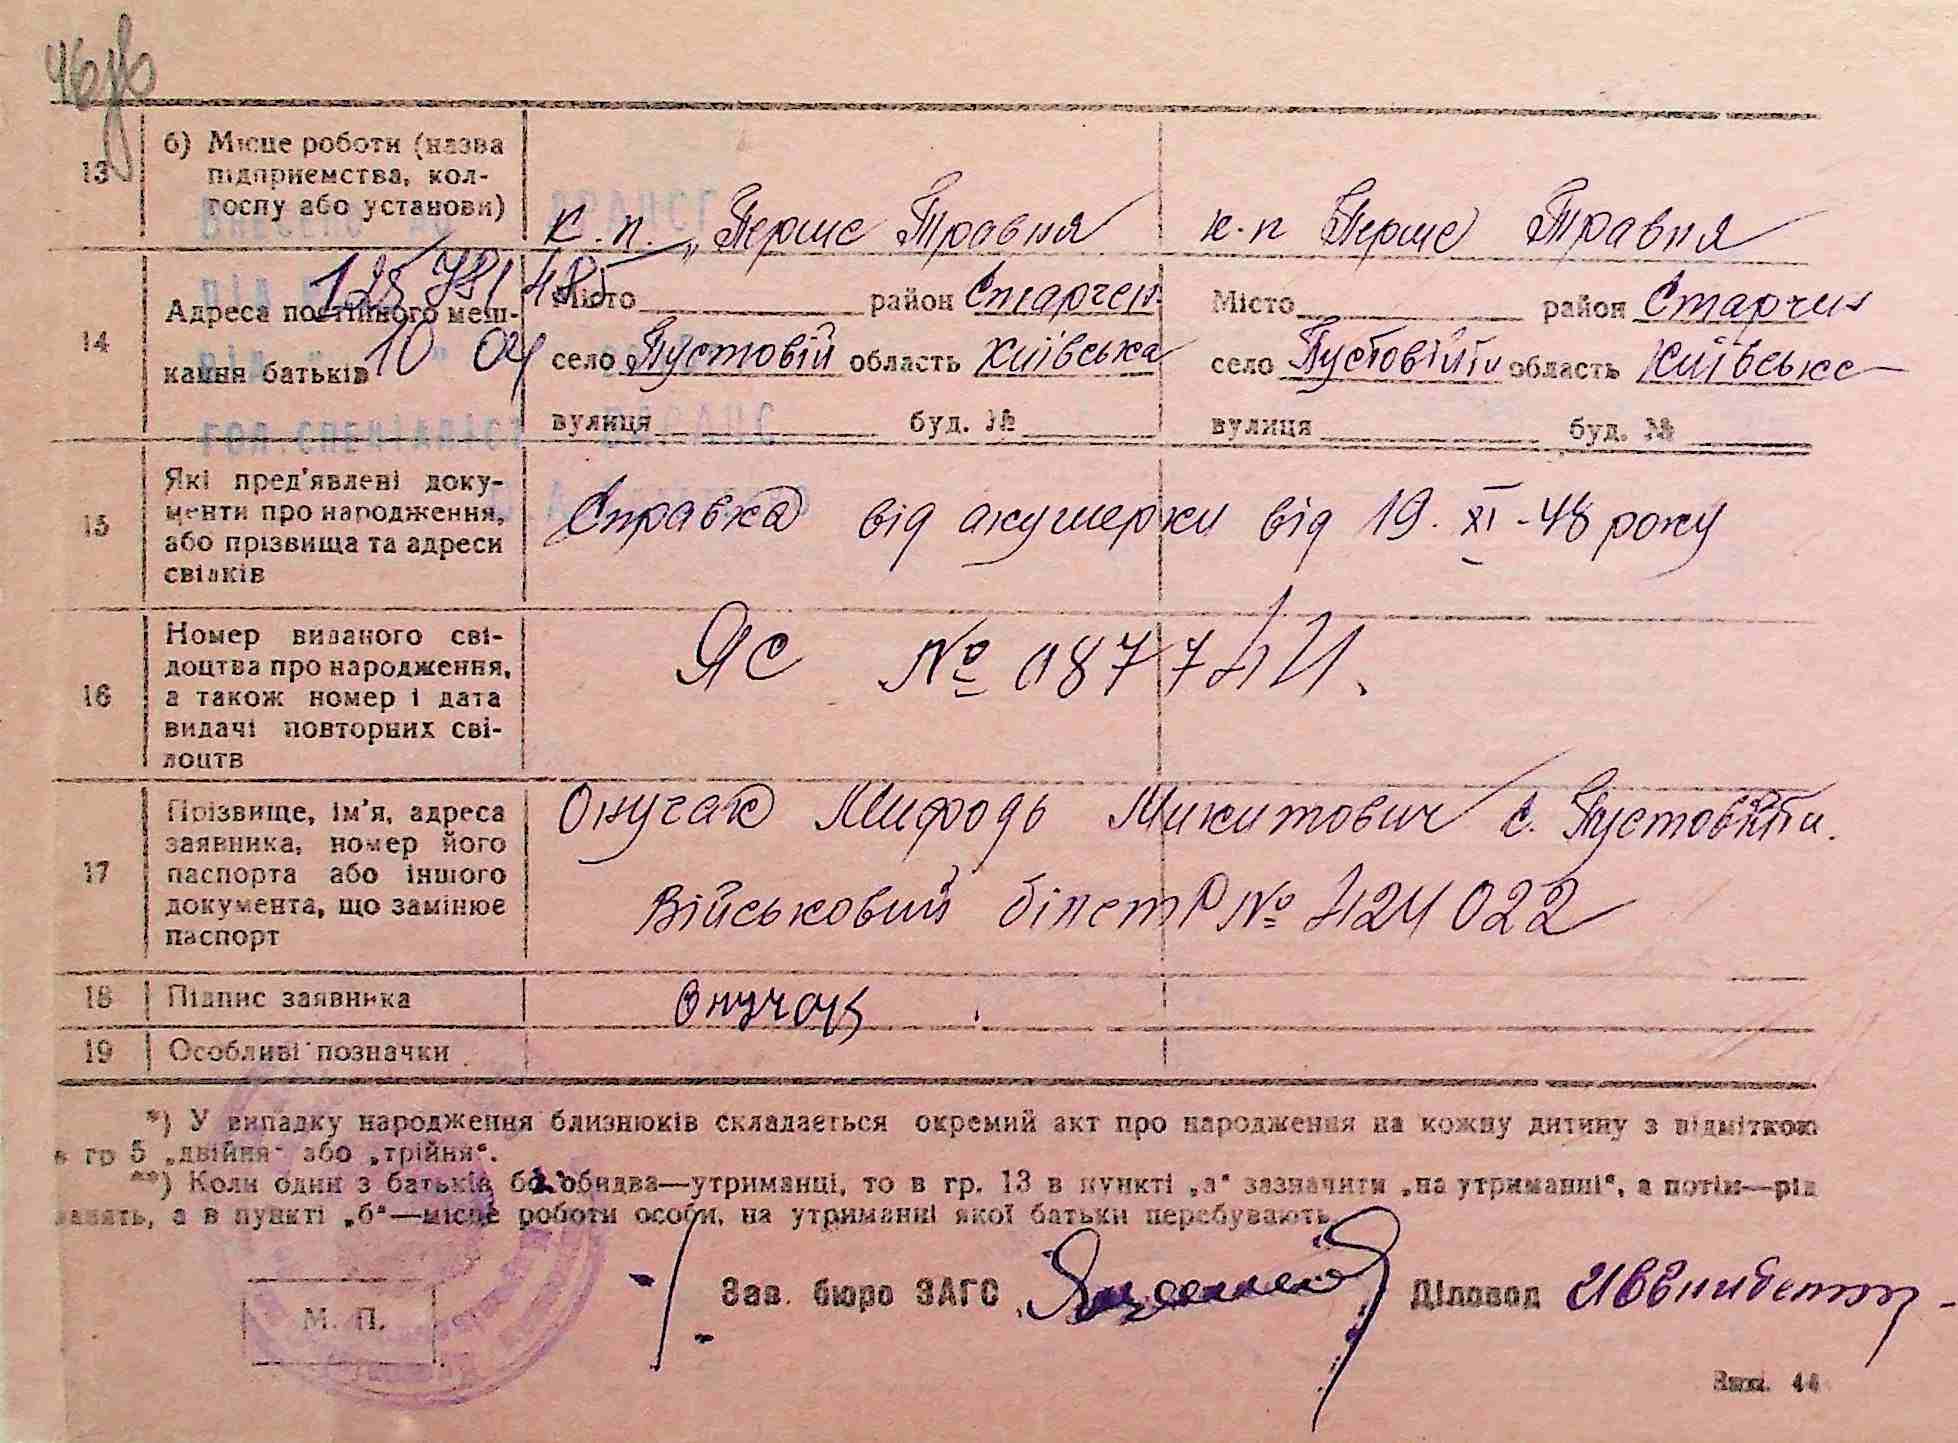 13 б) Місце роботи (назва підприємства, кол-госпу або установи)
к.п. „Перше Травня
к.п Перше Травня
14 Адреса постійного меш-
кання батьків
10 04
Місто район Старчен
село Пустовій область Київська
вулиця буд. №
Місто район Старчен
село Пустовійти область Київське
вулиця буд. №
15 Які пред'явлені доку-
менти про народження,
або прізвища та адреси
свідків
Справка від акушерки від 19. XI - 48 року
16 Номер виданого сві-
доцтва про народження,
а також номер і дата
видачі повторних сві-
доцтв
ЯС № 087744.
17 Прізвище, ім'я, адреса
заявника, номер його
паспорта або іншого
документа, що замінює
паспорт
Онучак Мифодь Микитович с. Пустовійти.
Військовий білет Р № 424022
18 Підпис заявника
Онучак
19 Особливі позначки
*) У випадку народження близнюків складається окремий акт про народження на кожну дитину з відміткою
в гр 5 „двійня“ або „трійня“.
**) Коли один з батьків бо обидва—утриманці, то в гр. 13 в пункті „а“ зазначити „на утриманні“, а потім—рід
занять, а в пункті „б“—місце роботи особи, на утриманні якої батьки перебувають
Зав. бюро ЗАГС
Діловод
М. П.
44